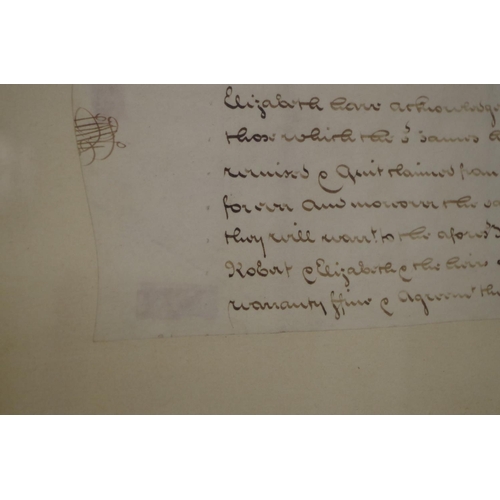 Elizabeth have acknowledg
those which the s^d James h
remised & Quitclaimed from
for ever And moreover the sa
they will warr^t. to the afores^d
Robert & Elizabeth & the heirs
warranty ffine & Agreem^t th